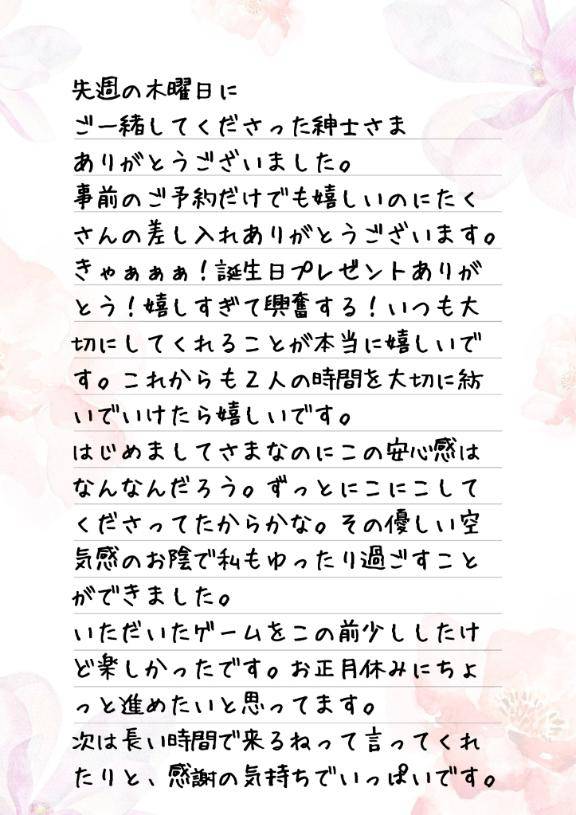 先週の木曜日に
ご一緒してくださった紳士さま
ありがとうございました。
事前のご予約だけでも嬉しいのにたく
さんの差し入れありがとうございます。
きゃぁぁぁ！誕生日プレゼントありが
とう！嬉しすぎて興奮する！いつも大
切にしてくれることが本当に嬉しいで
す。これからも２人の時間を大切に紡
いでいけたら嬉しいです。
はじめましてさまなのにこの安心感は
なんなんだろう。ずっとにこにこして
くださってたからかな。その優しい空
気感のお陰で私もゆったり過ごすこと
ができました。
いただいたゲームをこの前少ししたけ
ど楽しかったです。お正月休みにちょ
っと進めたいと思ってます。
次は長い時間で来るねって言ってくれ
たりと、感謝の気持ちでいっぱいです。